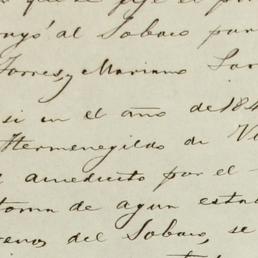 que se fije el
al Sobaco par
Torres, y Mariano
si en el año de 184
Hermenegildo de Vi
amedieto por el
toma de agua esta
renos del Sobaco, se